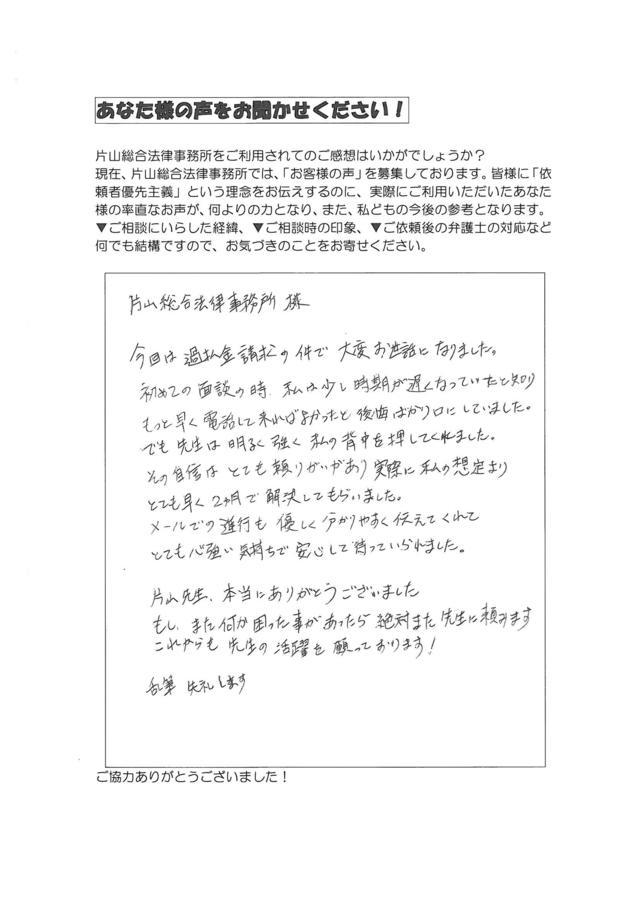 あなた様の声をお聞かせください！
片山総合法律事務所をご利用されてのご感想はいかがでしょうか？
現在、片山総合法律事務所では、「お客様の声」を募集しております。皆様に「依
頼者優先主義」という理念をお伝えするのに、実際にご利用いただいたあなた
様の率直なお声が、何よりの力となり、また、私どもの今後の参考となります。
▼ご相談にいらした経緯、▼ご相談時の印象、▼ご依頼後の弁護士の対応など
何でも結構ですので、お気づきのことをお寄せください。
片山総合法律事務所 様
今回は過払金請求の件で大変お世話になりました。
初めての面談の時、私は少し時期が遅くなっていたと知り
もっと早く電話して来ればよかったと後悔ばかり口にしていました。
でも先生は明るく強く私の背中を押してくれました。
その自信はとても頼りがいがあり実際に私の想定より
とても早く2ヶ月で解決してもらいました。
メールでの進行も優しく分かりやすく伝えてくれて
とても心強い気持ちで安心して待っていられました。
片山先生、本当にありがとうございました
もし、また何か困った事があったら絶対また先生に頼みます
これからも先生の活躍を願っております！
乱筆 失礼します
ご協力ありがとうございました！